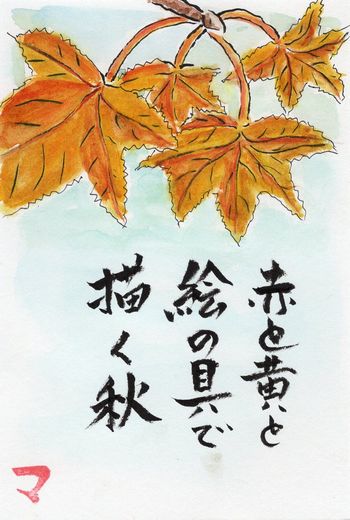 赤と黄と
絵の具で
描く秋
マ